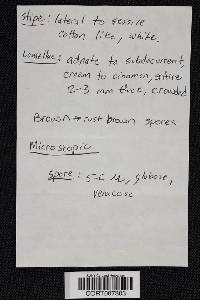 Stipe: lateral to sessile
cotton like, white.
Lamellae: adnate to subdecurrent,
cream to cinnamon, entire
2-3 mm thick, crowded
Brown → rust brown spores
Microscopic
Spore: 5-6 µ, globose,
verrucose